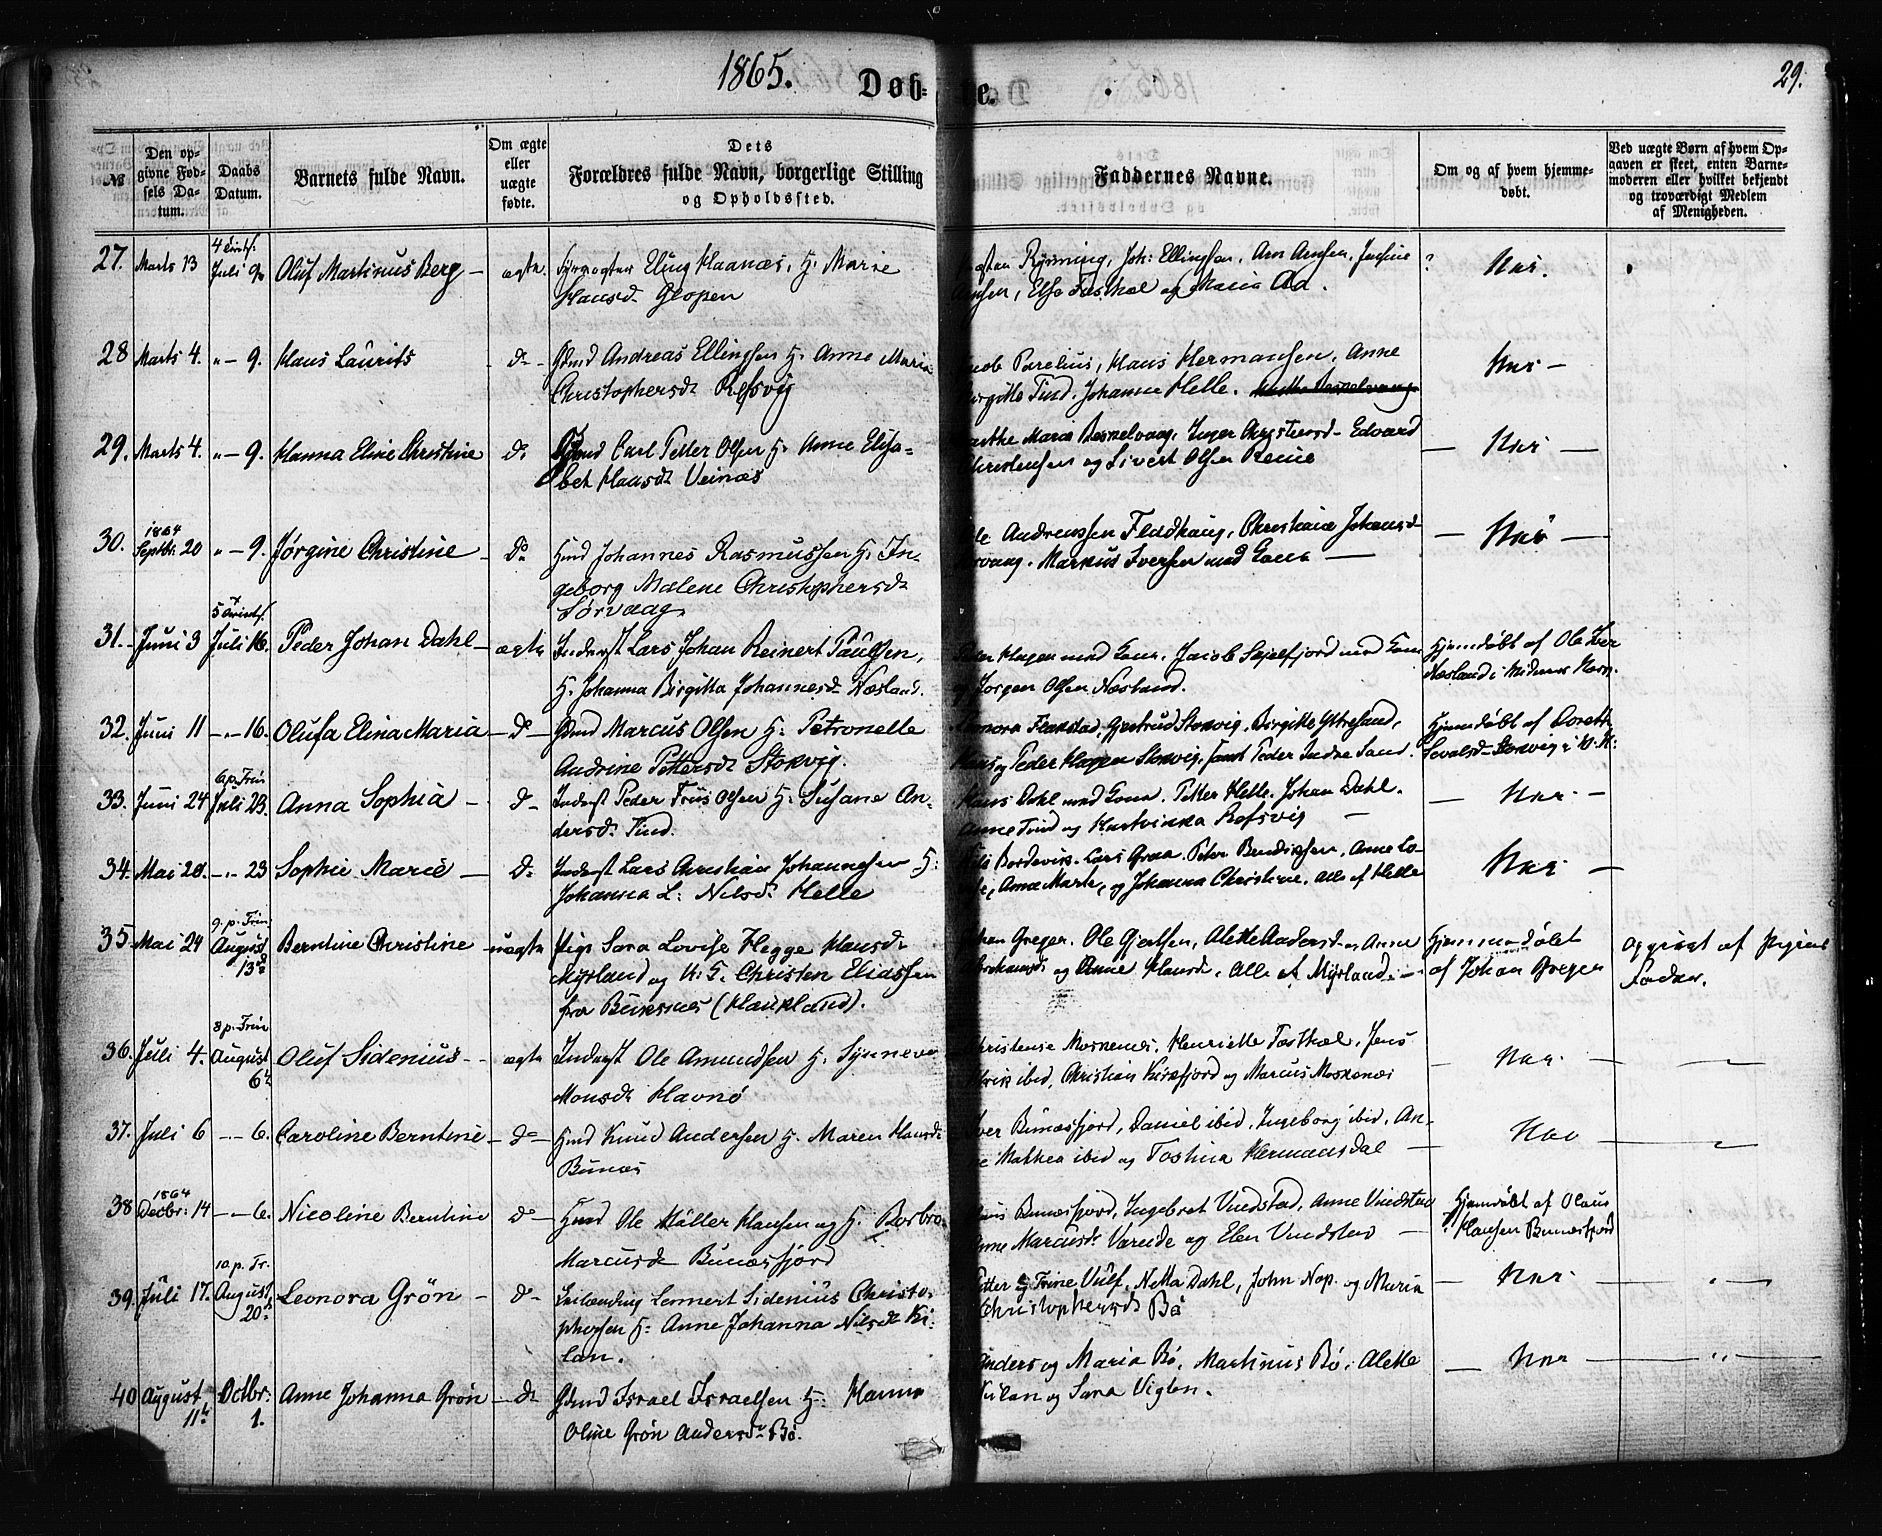 1865. Døb= te. 29.
№
Den op-
givne Fød-
sels Da-
tum.
Daabs
Datum.
Barnets fulde Navn.
Om ægte
eller
uægte
fødte.
Dets
Forældres fulde Navn, borgerlige Stilling
og Opholdssted.
Faddernes Navne.
Om og af hvem hjemme-
døbt.
Ved uægte Børn af hvem Op-
gaven er skeet, enten Barne-
moderen eller hvilket bekjendt
og troværdigt Medlem
af Menigheden.
27. Marts 13 Juli 9 Oluf Martinus Berg - ægte. Eling Haanæs, H. Marie
Hansd. Glopen
Rynning, Joh: Ellingsen, Arn Arnsen,
Else og Maria Aa.
Nei.
28 Marts 4. " - 9. Hans Laurits - do - Gbmd Andreas Ellingsen H. Anne Maria
Christophersd. Refsvig
Parelius, Hans Hermansen, Anne
Birgitte Tind, Johanna Helle.
Nei -
29. Marts 4. " - 9. Hanna Eline Christine do Carl Petter Olsen H. Anne Elisa-
bet Hansd. Veinæs
Marthe Maria Inger Edvard
Christensen og Sivert Olsen Reine
Nei -
30. 1864
Septbr. 20 " - 9. Jørgine Christine - do Hmd Johannes Rasmussen H. In-
geborg Malene Christophersd.
Sørvaag.
Ole Andreassen Christiane Johansd.
Sørvaag. Markus Iversen med Kone -
Nei -
31. Juni 3 Juli 16. Peder Johan Dahl - ægte Inderst Lars Johan Reinert Paulsen,
H. Johanna Birgitta Johannesd. Næsland.
Peder Hagen med Kone, Jacob Selfjord med Kone
og Jørgen Olsen Næsland.
Hjemdøbt af Ole
Næsland i
32. Juni 11 - " - 16. Olufa Elina Maria - do - Gbmd Marcus Olsen H. Petronelle
Andrine Pettersd. Stokvig.
Flakstad, Gjertrud Stokvig, Birgitte Ytresand,
Hans og Peder Hagen Stokvig, samt Peder Indre Sand.
Hjemdøbt af
33. Juni 24 6 p. Trin
Juli 23. Anna Sophia - do - Inderst Peder Olsen H. Susane An-
dersd. Tind.
Hans Dahl med Kone. Petter Helle. Johan Dahl.
Anne Tind og Hartvikka Refsvig -
- Nei -
34. Mai 28. - " - 23 Sophie Marie - do Inderst Lars Christian Johannesen H:
Johanna L: Nilsd. Helle
Lars Peter Bendiksen, Anne Lo-
Anne Marte, og Johanna Christine. Alle af Helle
Nei -
35. Mai 24 9. p. Trin:
August
13de Berntine Christine - uægte Pige Sara Lovise Hegge Hansd.
Myrland og U. G. Christen Eliassen
fra Buksnes (Haukland).
Johan Greger. Ole Gjertsen, Alette Andersd. og Anne
og Anne Hansd. Alle af Myrland. -
Hjemmedøbt
af Johan Greger
Opgivet af Pigens
Fader.
36. Juli 4. 8 p. Trin
August
6te Oluf Sidenius - ægte Inderst Ole Amundsen H. Synneve
Monsd. Havnø
Christense Moskenæs. Henriette Jens
ibid, Christian Kirkefjord og Marcus Moskenæs
- Nei -
37. Juli 6 - " - 6. Caroline Berntine - do - Hmd Knud Andersen H. Maren Hansd.
Bunæs
Iver Bunæsfjord, Daniel ibid, Ingeborg ibid, An-
ne Mathea ibid og Hermansdal -
Nei -
38 1864
Decbr: 14 - " - 6. Nicoline Berntine do - Hmd Ole Møller Hansen og H. Barbro
Marcusd. Bunæsfjord
Bunæsfjord, Ingebret Vindstad, Anne Vindstad
Anne Marcusd. og Elen Vindstad -
Hjemdøbt af Olaus
Hansen Bunæsfjord
39. Juli 17. 10. p. Tr.
August
20de Leonora Grøn - do - Lennert Sidenius Christo-
phersen H. Anne Johanna Nilsd. Ki-
lan.
Petter og Trine Vulf, Netta Dahl, John Nap. og Maria
Christophersd. Bø
- Nei -
40 August
11te Octbr:
1. Anne Johanna Grøn - do Gbmd Israel Israelsen H: Hanna
Oline Grøn Andersd. Bø.
Anders og Maria Bø, Martinus Bø, Alette
Kilan og Sara Vigten.
- Nei -